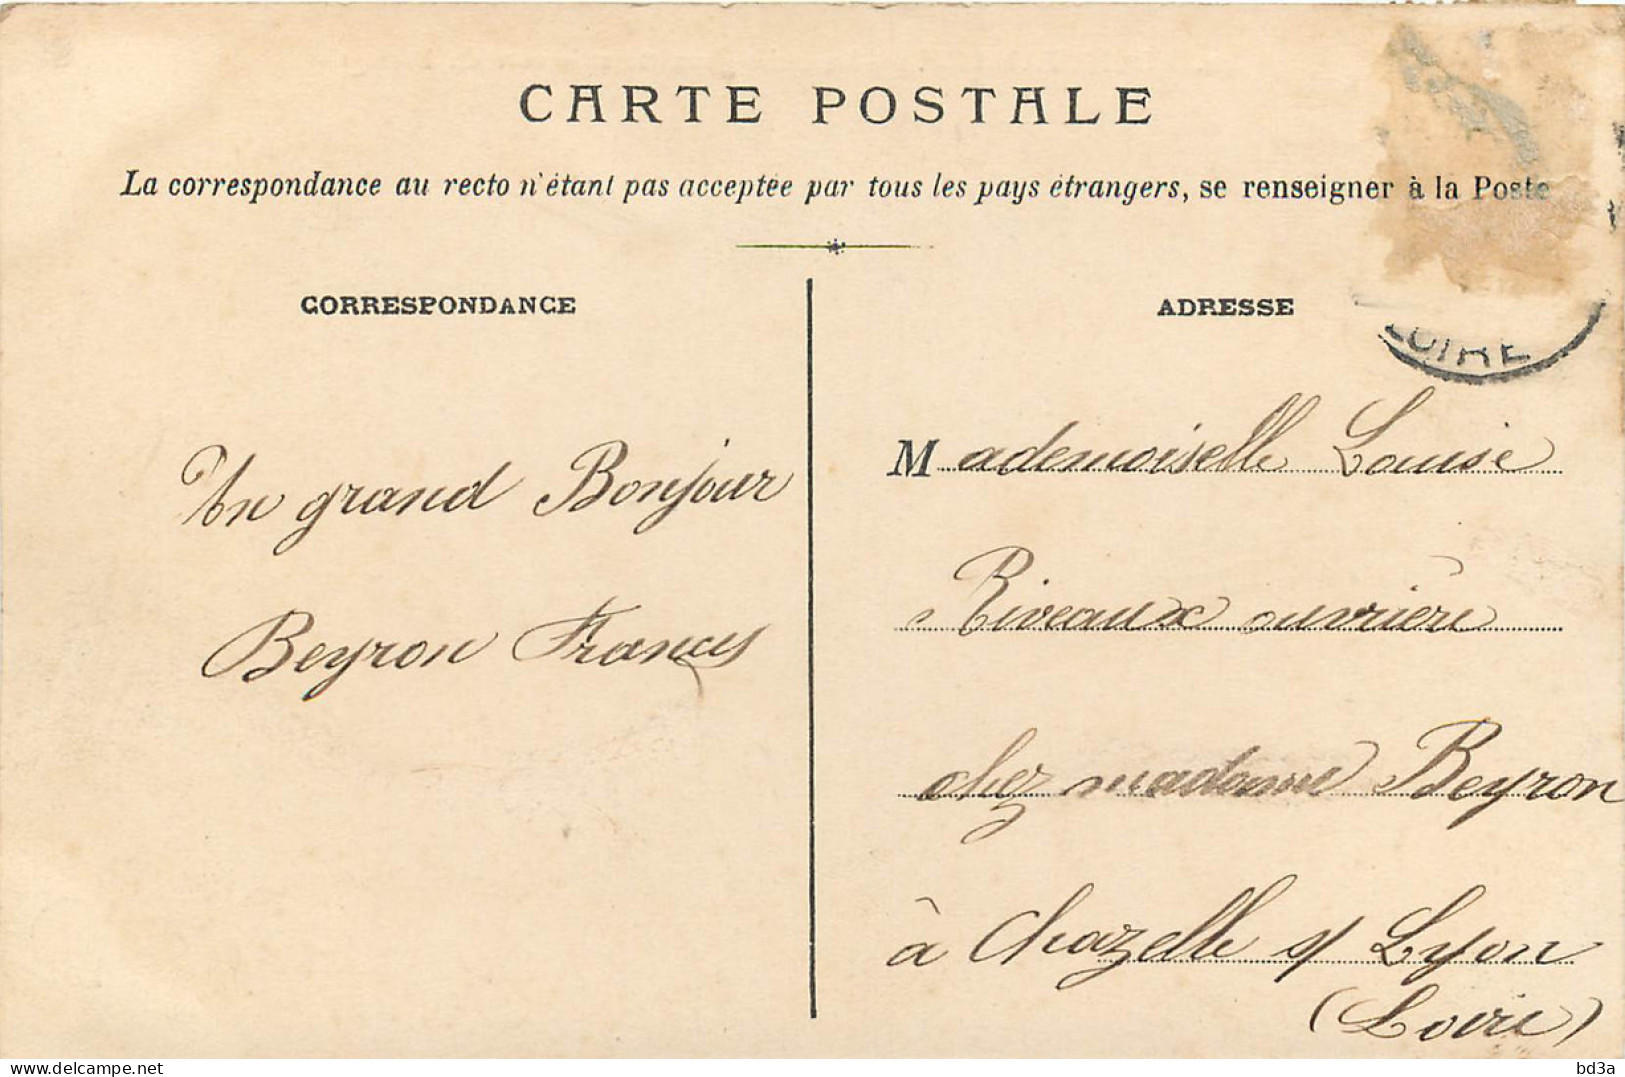 CARTE POSTALE
La correspondance au recto n'étant pas acceptée par tous les pays étrangers, se renseigner à la Poste
CORRESPONDANCE
ADRESSE
LOIRE
Un grand Bonjour
Beyron Francis
Mademoiselle Louise
Riveaux ouvrière
chez madame Beyron
à Chazelle s/ Lyon
(Loire)
delcampe.net
bd3a